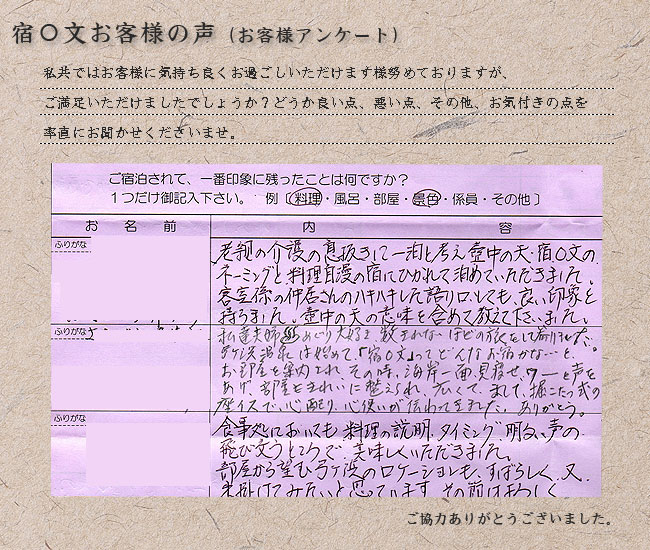 宿〇文お客様の声（お客様アンケート）
私共ではお客様に気持ち良くお過ごしいただけます様努めておりますが、
ご満足いただけましたでしょうか？どうか良い点、悪い点、その他、お気付きの点を
率直にお聞かせくださいませ。
ご宿泊されて、一番印象に残ったことは何ですか？
1つだけ御記入下さい。 例〔料理・風呂・部屋・景色・係員・その他〕
お名前 内容
ふりがな
老親の介護の息抜きに一泊と考え壺中の天・宿〇文の
ネーミングと料理自慢の宿にひかれて泊めていただきました。
客室係の仲居さんのハキハキした語り口、とても良い印象を
持ちました。壺中の天の意味を含めて教えて下さいました。
ふりがな
私達夫婦 めぐり大好き、数きれないほどの旅をして参りました。
温泉は始めて、「宿〇文」ってどんなお宿かないと、
お部屋を案内され、その時、海岸一面見渡せ、ワーと声を
あげ、部屋もきれいに整えられ、広くて、まして、掘こたつ式の
座イスで、心配り、心使いが伝わってきました。ありがとう。
ふりがな
食事処においても料理の説明、タイミング、明るい声の
飛び交うところで、美味しくいただきました。
部屋から望む のロケーションも、すばらしく、又、
出掛けてみたいと思っています。その節はよろしく
ご協力ありがとうございました。